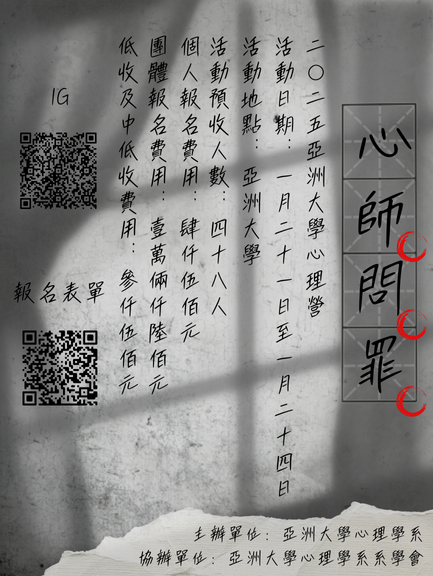 心師問罪
二〇二五亞洲大學心理營
活動日期：一月二十一日至一月二十四日
活動地點：亞洲大學
活動預收人數：四十八人
個人報名費用：肆仟伍佰元
團體報名費用：壹萬倆仟陸佰元
低收及中低收費用：參仟伍佰元
IG
報名表單
主辦單位：亞洲大學心理學系
協辦單位：亞洲大學心理學系系學會